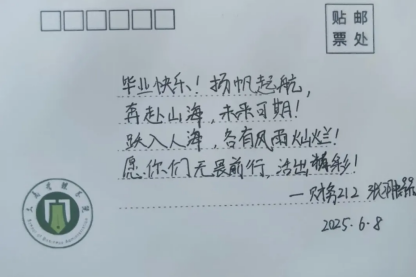 贴 邮
票 处
毕业快乐！扬帆起航，
再赴山海，未来可期！
跃入人海，各有风雨灿烂！
愿你们无畏前行，活出精彩！
—财务212
2025.6.8